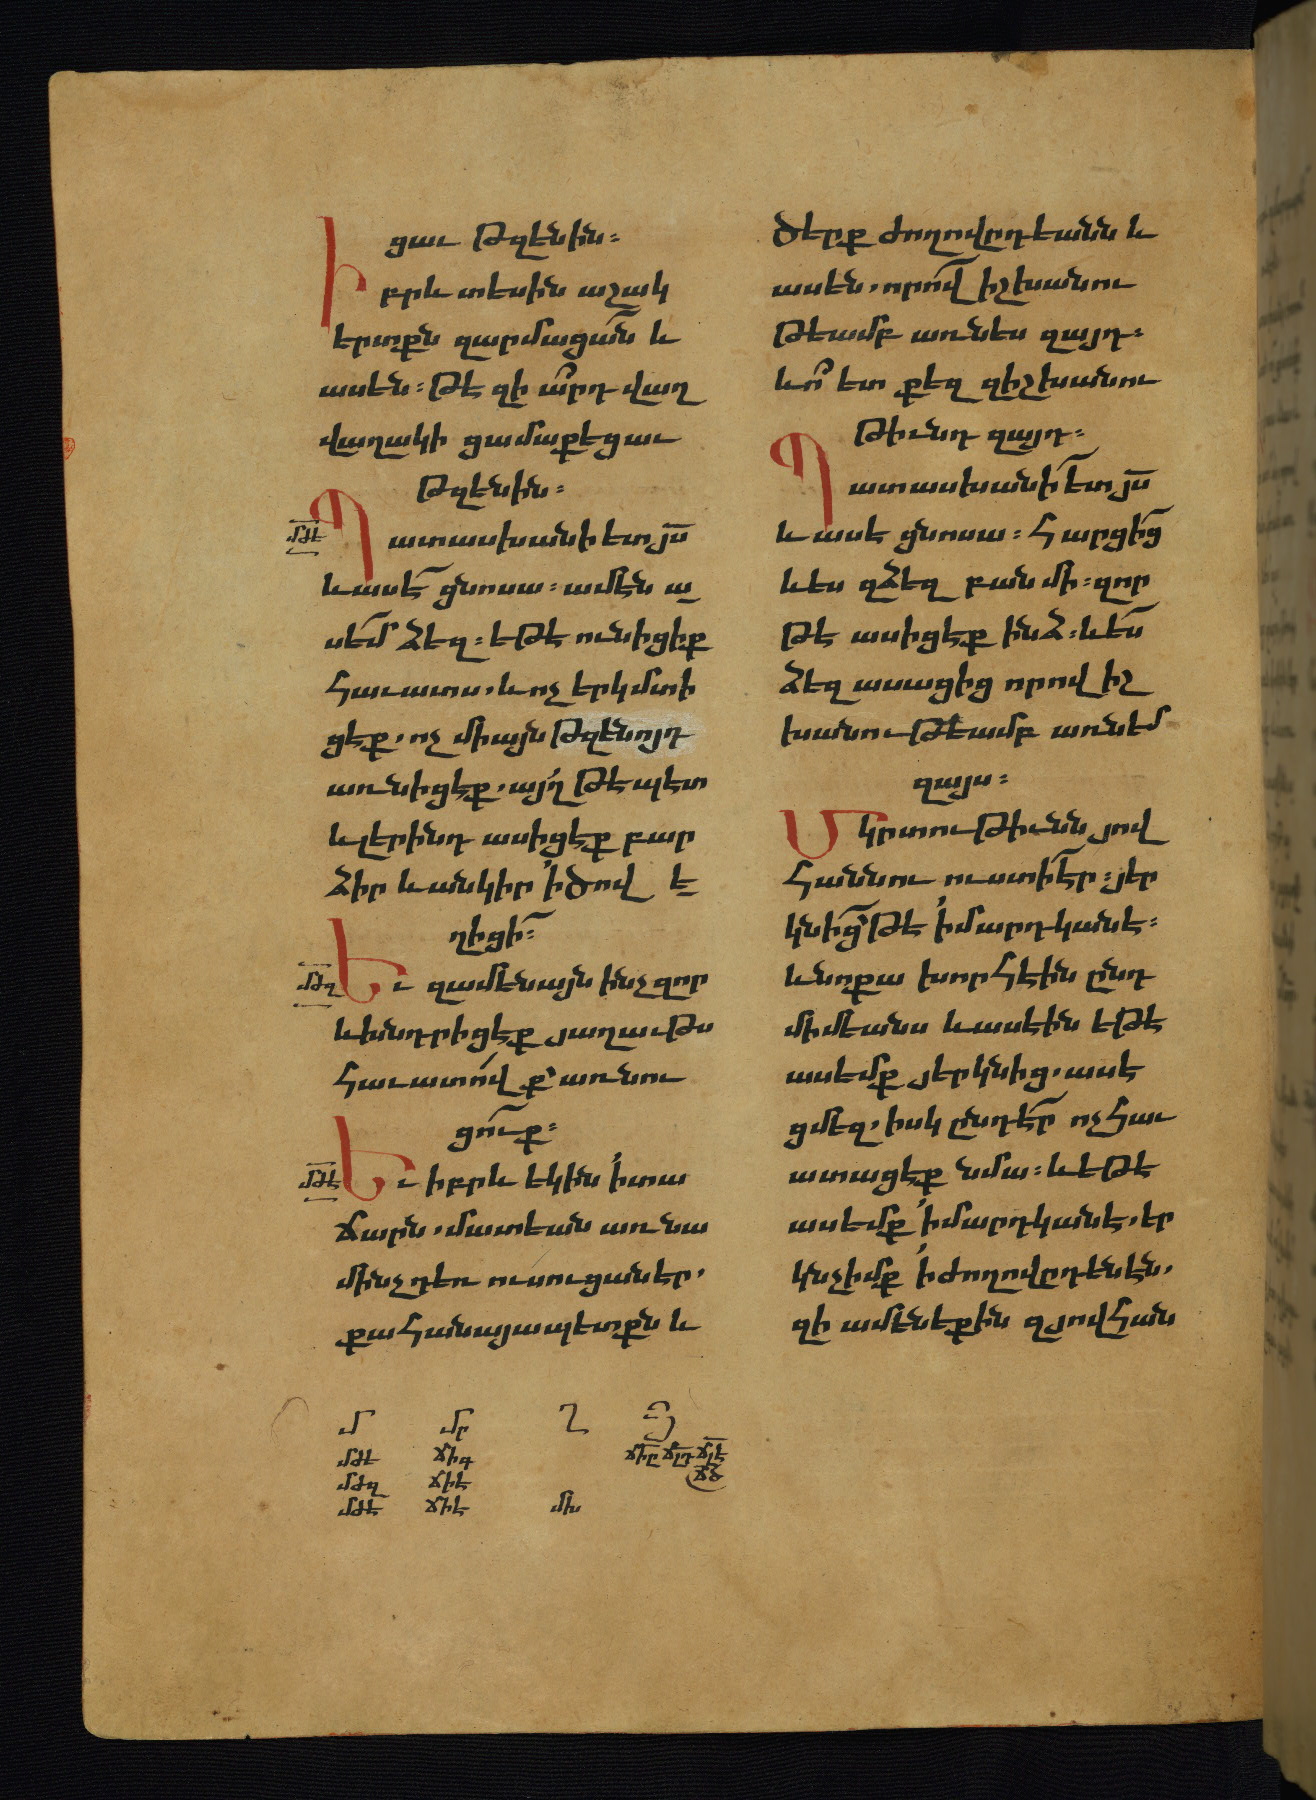 ցաւ թզենին։
Իբրև տեսին աշակ
երտքն զարմացան և
ասեն։ թէ զի ա՞րդ վաղ
վաղակի ցամաքեցաւ
թզենին։
մժե
Պատասխանի ետ յս
և ասէ ցնոսա։ ամէն ա
սեմ ձեզ։ եթէ ունիցիք
հաւատս, և ոչ երկմտի
ցէք, ոչ միայն թզենոյդ
առնիցէք, այղ թե պետ
և լերինդ ասիցէք բար
ձիր և անկիր ՚ի ծով ե
ղիցի։
մժզ
Եւ զամենայն ինչ զոր
և խնդրիցէք յաղաւթս
հաւատով ք առնու
ցուք։
մժէ
Եւ իբրև եկին ՚ի տա
ճարն, մատեան առ նա
մինչդեռ ուսուցաներ,
քահանայապետքն և
ծերք ժողովրդեանն և
ասեն, որով իշխանու
թեամբ առնես զայդ։
և ո՞ ետ քեզ զիշխանու
թիւնդ զայդ։
Պատասխանի ետ յս
և ասէ ցնոսա։ Հարցից
և ես զձեզ բան մի։ զոր
թէ ասիցէք ինձ։ և ես
ձեզ ասացից որով իշ
խանութեամբ առնեմ
զայս։
Մկրտութիւնն յով
հաննու ուստի էր։ յեր
կնից թէ ՚ի մարդկանե։
և նոքա խորհէին ընդ
միմեանս և ասէին եթէ
ասեմք յերկնից, ասէ
ցմեզ, իսկ ընդէր ոչ հաւ
ատացէք նմա։ և եթէ
ասեմք ՚ի մարդկանէ, եր
կնչիմք ՚ի ժողովրդենեն,
զի ամենեքին զյովհան
մ մր ղ
մժե ճիգ ճիը ճլդ ճլէ
մժզ ճիե ճծ
մժէ ճիէ մխ